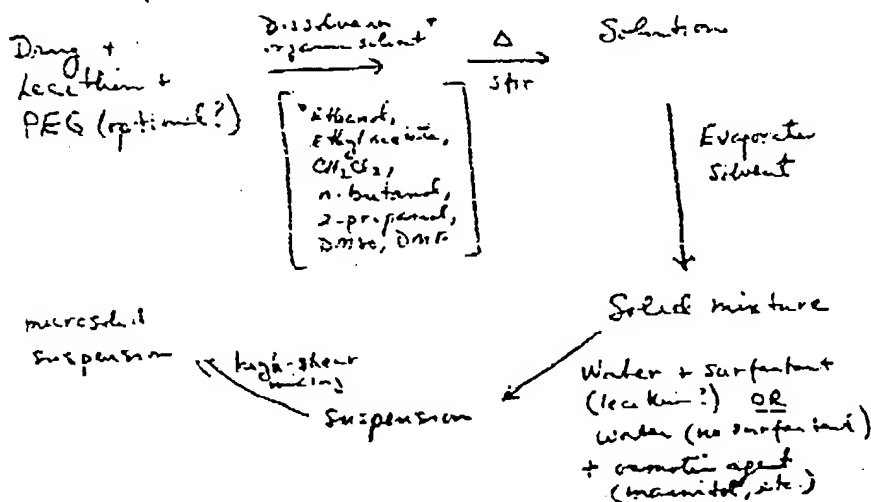 Drug +
Lecithin +
PEG (optional?)
Dissolve in
organic solvent *
Δ
stir
Solution
* Ethanol,
Ethyl acetate,
CH2Cl2,
n-butanol,
2-propanol,
DMSO, DMF
Evaporate
Solvent
Solid mixture
Water + surfactant
(lecithin?) OR
water (no surfactant)
+ osmotic agent
(mannitol, etc.)
suspension
high-shear
mixing
microsolid
suspension